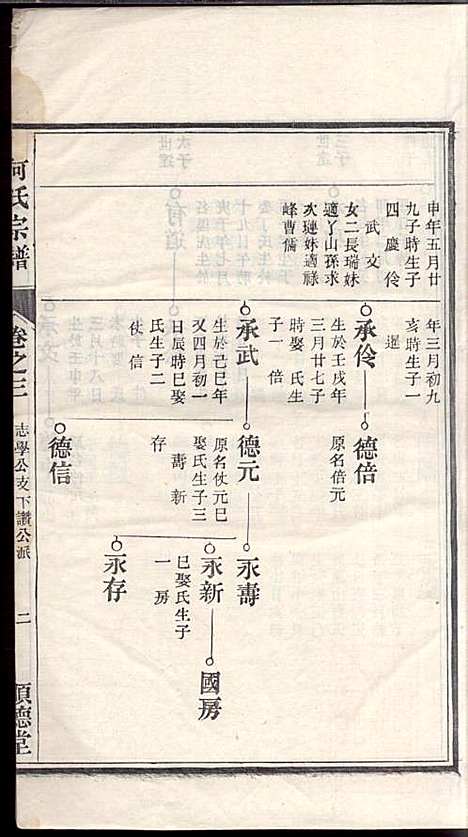 申年五月廿
九子時生子
四 慶 伶
武 文
女二長瑞妹
適丫山孫求
次璉妹適祿
峰曹儒
年三月初九
亥時生子一
暹
承伶
生於壬戌年
三月廿七子
時娶 氏生
子一 倍
承武
生於己巳年
又四月初一
日辰時巳娶
氏生子二
仗 信
德倍
原名倍元
德元
原名仗元巳
娶氏生子三
壽 新
存
德信
永壽
永新
巳娶氏生子
一 房
永存
國房
何氏宗譜
卷之三
志學公支下讚公派
二
順德堂